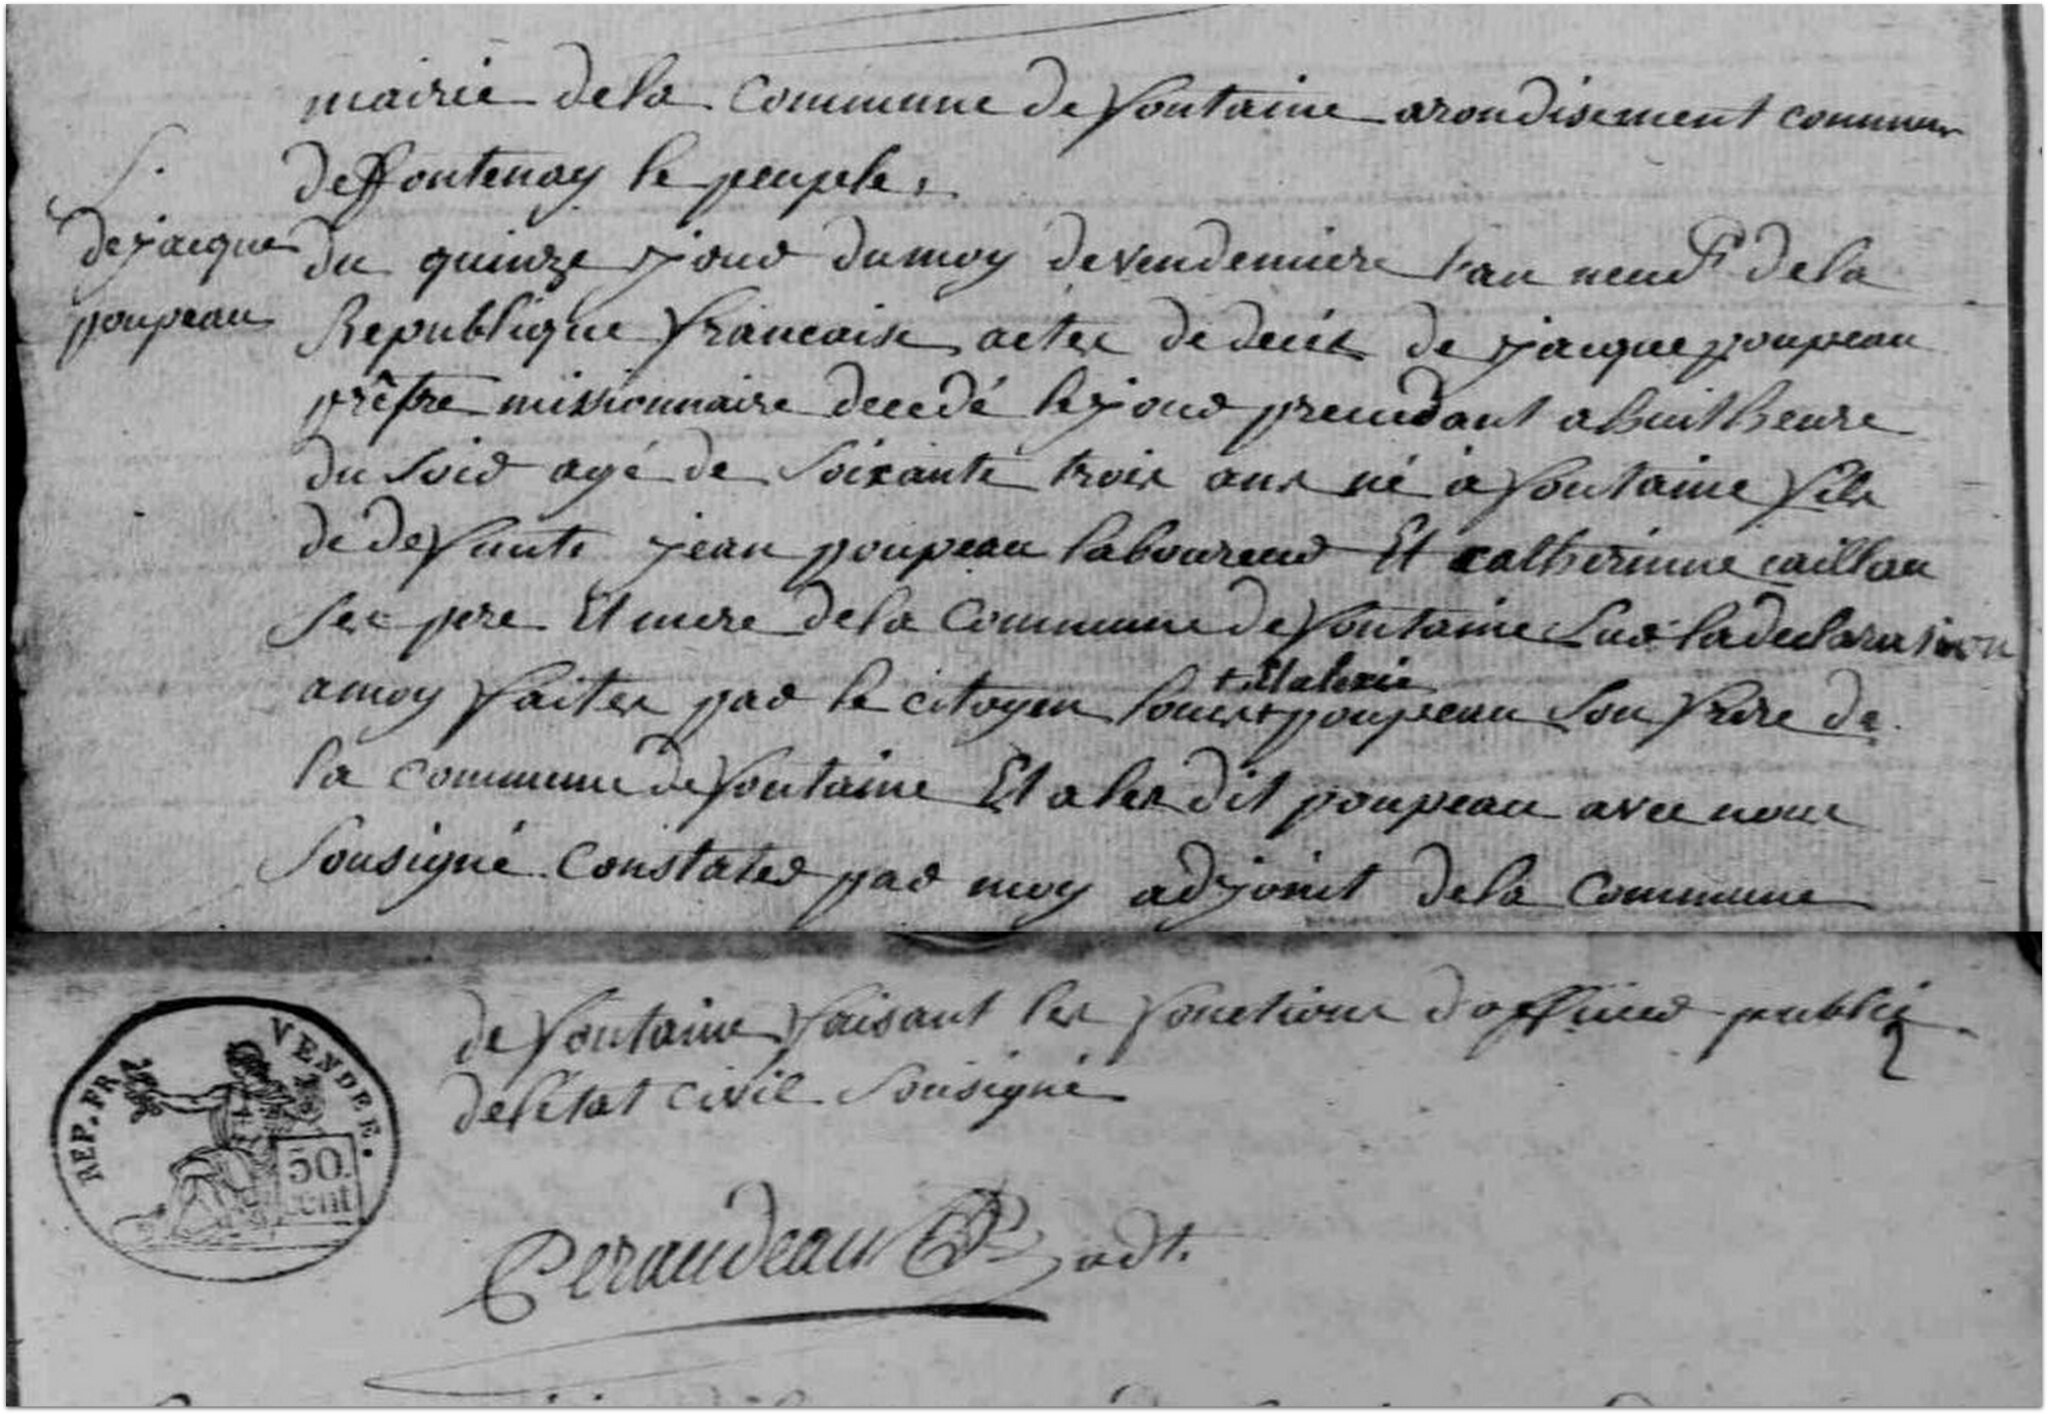 mairie de la Commune de fontaine arondisement commun
de ffontenay le peuple,
S.
de jacque
poupeau
du quinze jour du moy de vendemiere l'an neuf de la
Republique francaise actes de decés de jacque poupeau
prêtre missionnaire decedé le jour precedant a huit heure
du soir agé de soixante trois ans né a fontaine fils
de defunts jean poupeau laboureur Et catherinne caillau
ses pere Et mere de la Commune de fontaine Sur la declarasion
a moy faites par le citoyen louis + poupeau son frere de
+ Et alexis
la commune de fontaine Et a les dit poupeau avec nous
Sousigné. Constater par moy adjoint de la Commune
de fontaine faisant les fonctions d'officier public
de l'état civil Sousigné
REP. FR. VENDEE.
50.
cent
Geraudeau adt.